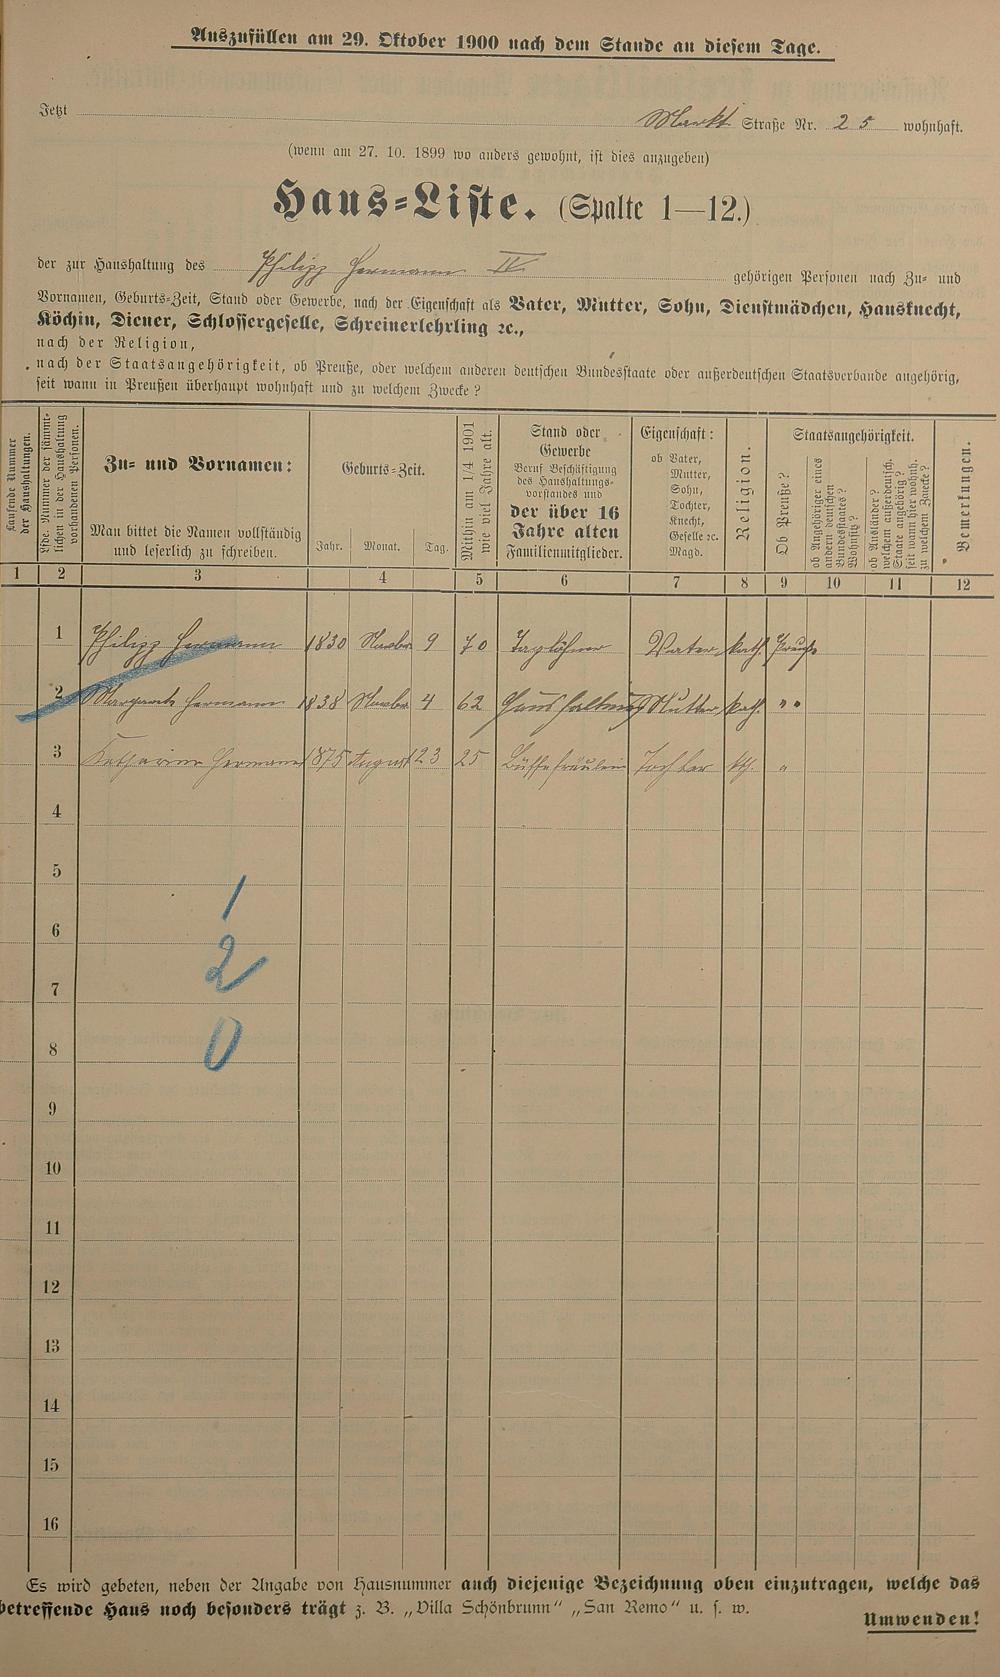 Auszufüllen am 29. Oktober 1900 nach dem Stande an diesem Tage.
Jetzt Markt Straße Nr. 25 wohnhaft.
(wenn am 27. 10. 1899 wo anders gewohnt, ist dies anzugeben)
Haus-Liste. (Spalte 1—12.)
der zur Haushaltung des Philipp Hermann IV gehörigen Personen nach Zu- und
Vornamen, Geburts-Zeit, Stand oder Gewerbe, nach der Eigenschaft als Vater, Mutter, Sohn, Dienstmädchen, Hausknecht,
Köchin, Diener, Schlossergeselle, Schreinerlehrling ꝛc.,
nach der Religion,
nach der Staatsangehörigkeit, ob Preuße, oder welchem anderen deutschen Bundesstaate oder außerdeutschen Staatsverbande angehörig,
seit wann in Preußen überhaupt wohnhaft und zu welchem Zwecke?
Laufende Nummer
der Haushaltungen.
Lfde. Nummer der sämmt-
lichen in der Haushaltung
vorhandenen Personen.
Zu- und Vornamen:
Man bittet die Namen vollständig
und leserlich zu schreiben.
Geburts-Zeit.
Jahr. Monat. Tag.
Mithin am 1/4 1901
wie viel Jahre alt.
Stand oder
Gewerbe
Beruf Beschäftigung
des Haushaltungs-
vorstandes und
der über 16
Jahre alten
Familienmitglieder.
Eigenschaft:
ob Vater,
Mutter,
Sohn,
Tochter,
Knecht,
Geselle ꝛc.
Magd.
Religion.
Staatsangehörigkeit.
Ob Preuße?
ob Angehöriger eines
andern deutschen
Bundesstaates?
Wohnsitz?
ob Ausländer?
welchem außerdeutsch.
Staate angehörig?
seit wann hier wohnh.
zu welchem Zwecke?
Bemerkungen.
1 2 3 4 5 6 7 8 9 10 11 12
1 Philipp Hermann 1830 Novbr. 9 70 Taglöhner Vater kath. Preuße
2 Margareta Hermann 1838 Novbr. 4 62 Haushaltung Mutter kath. " "
3 Katharina Hermann 1875 August 23 25 Büffefräulein Tochter kth. "
4
5
1
6
2
7
0
8
9
10
11
12
13
14
15
16
Es wird gebeten, neben der Angabe von Hausnummer auch diejenige Bezeichnung oben einzutragen, welche das
betreffende Haus noch besonders trägt z. B. „Villa Schönbrunn" „San Remo" u. s. w.
Umwenden!